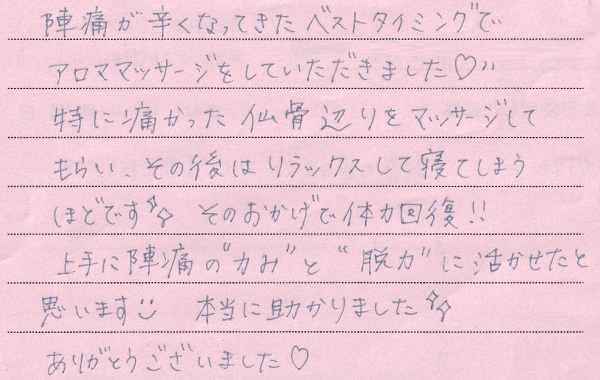 陣痛が辛くなってきたベストタイミングで
アロママッサージをしていただきました♡〃
特に痛かった仙骨辺りをマッサージして
もらい、その後はリラックスして寝てしまう
ほどです✨ そのおかげで体力回復!!
上手に陣痛の"力み"と"脱力"に活かせたと
思います☺ 本当に助かりました✨
ありがとうございました♡